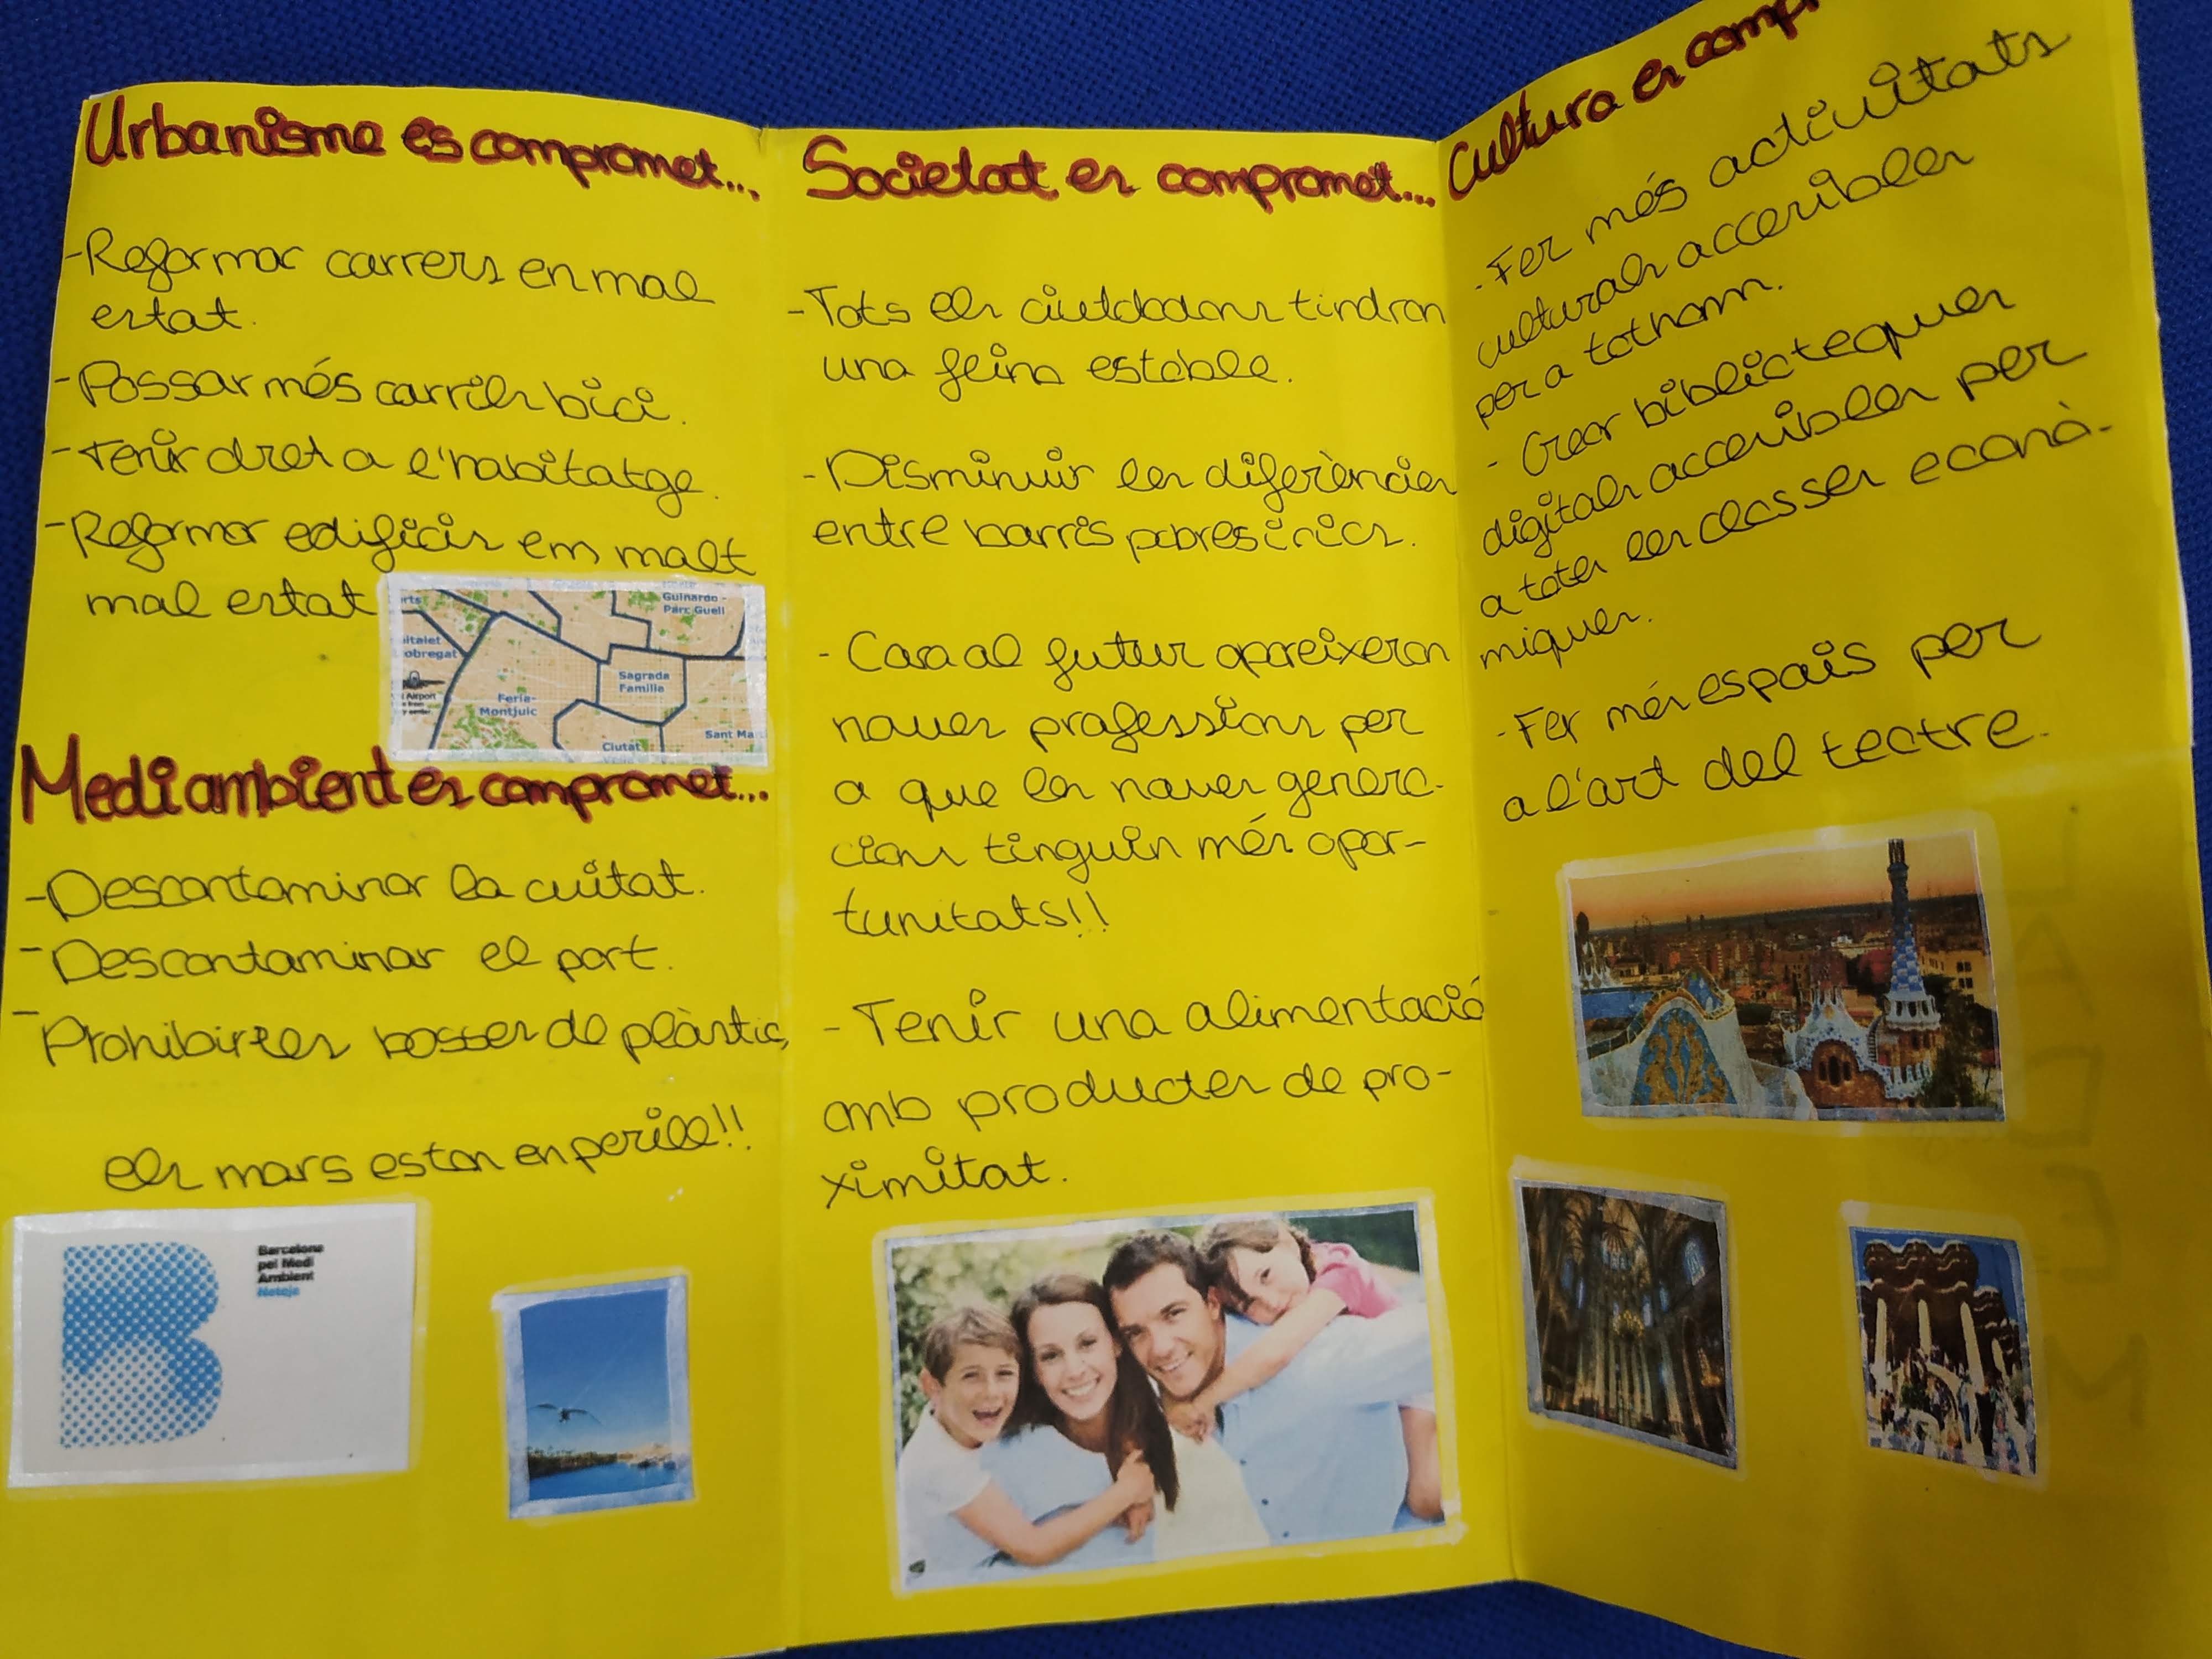 Urbanisme es compromet...
-Reformar carrers en mal
estat.
-Possar més carrils bici.
-Tenir dret a l'habitatge.
-Reformar edificis em malt
mal estat
Guinardo -
Parc Guell
Sagrada
Familia
Feria-
Montjuic
Ciutat
Airport
Medi ambient es compromet...
-Descontaminar la cuitat.
-Descontaminar el port.
-Prohibir les bosses de plàstic,
els mars estan en perill!!
Barcelona
pel Medi
Ambient
Neteja
B
Societat es compromet....
-Tots els ciutdadans tindran
una feina estable.
-Disminuir les diferències
entre barris pobres i rics.
- Cara al futur apareixeran
noves professions per
a que les noves genera-
cions tinguin més opor-
tunitats!!
- Tenir una alimentació
amb productes de pro-
ximitat.
Cultura es
-Fer més activitats
culturals accesibles
per a tothom.
- Crear biblioteques
digitals accesibles per
a totes les classes econò-
miques.
-Fer més espais per
a l'art del teatre.